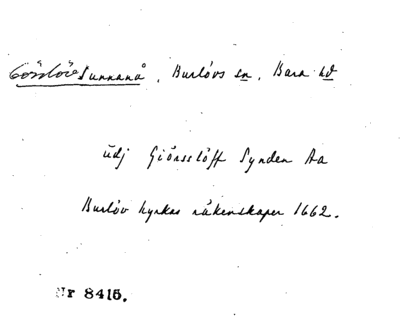 Görslöv Sunnanå, Burlövs sn, Bara hd
udj Giörsslöff Synden Aa
Burlöv kyrkas räkenskaper 1662.
Nr 8415.